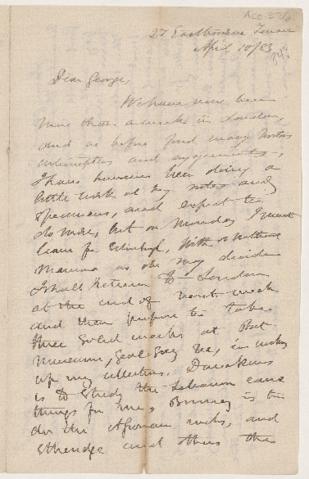 27 Eastbourne Terrace
April 10/83
Dear George,
We have now been
more than a week in London,
and as before find many
interruptions and engagements;
I have however been doing a
little work at my notes and
specimens, and expect to
do more, but on Monday I must
leave for Edinburgh, with or without
Mamma as she may decide
I shall return to London
at the end of next week
and then prepare to take
three solid weeks at Brit
Museum, Geol Soc &c, in working
up my collections. Dawkins
is to study the Lebanon cave
things for me, Bonney is to
do the rocks, and
Etheridge and others the